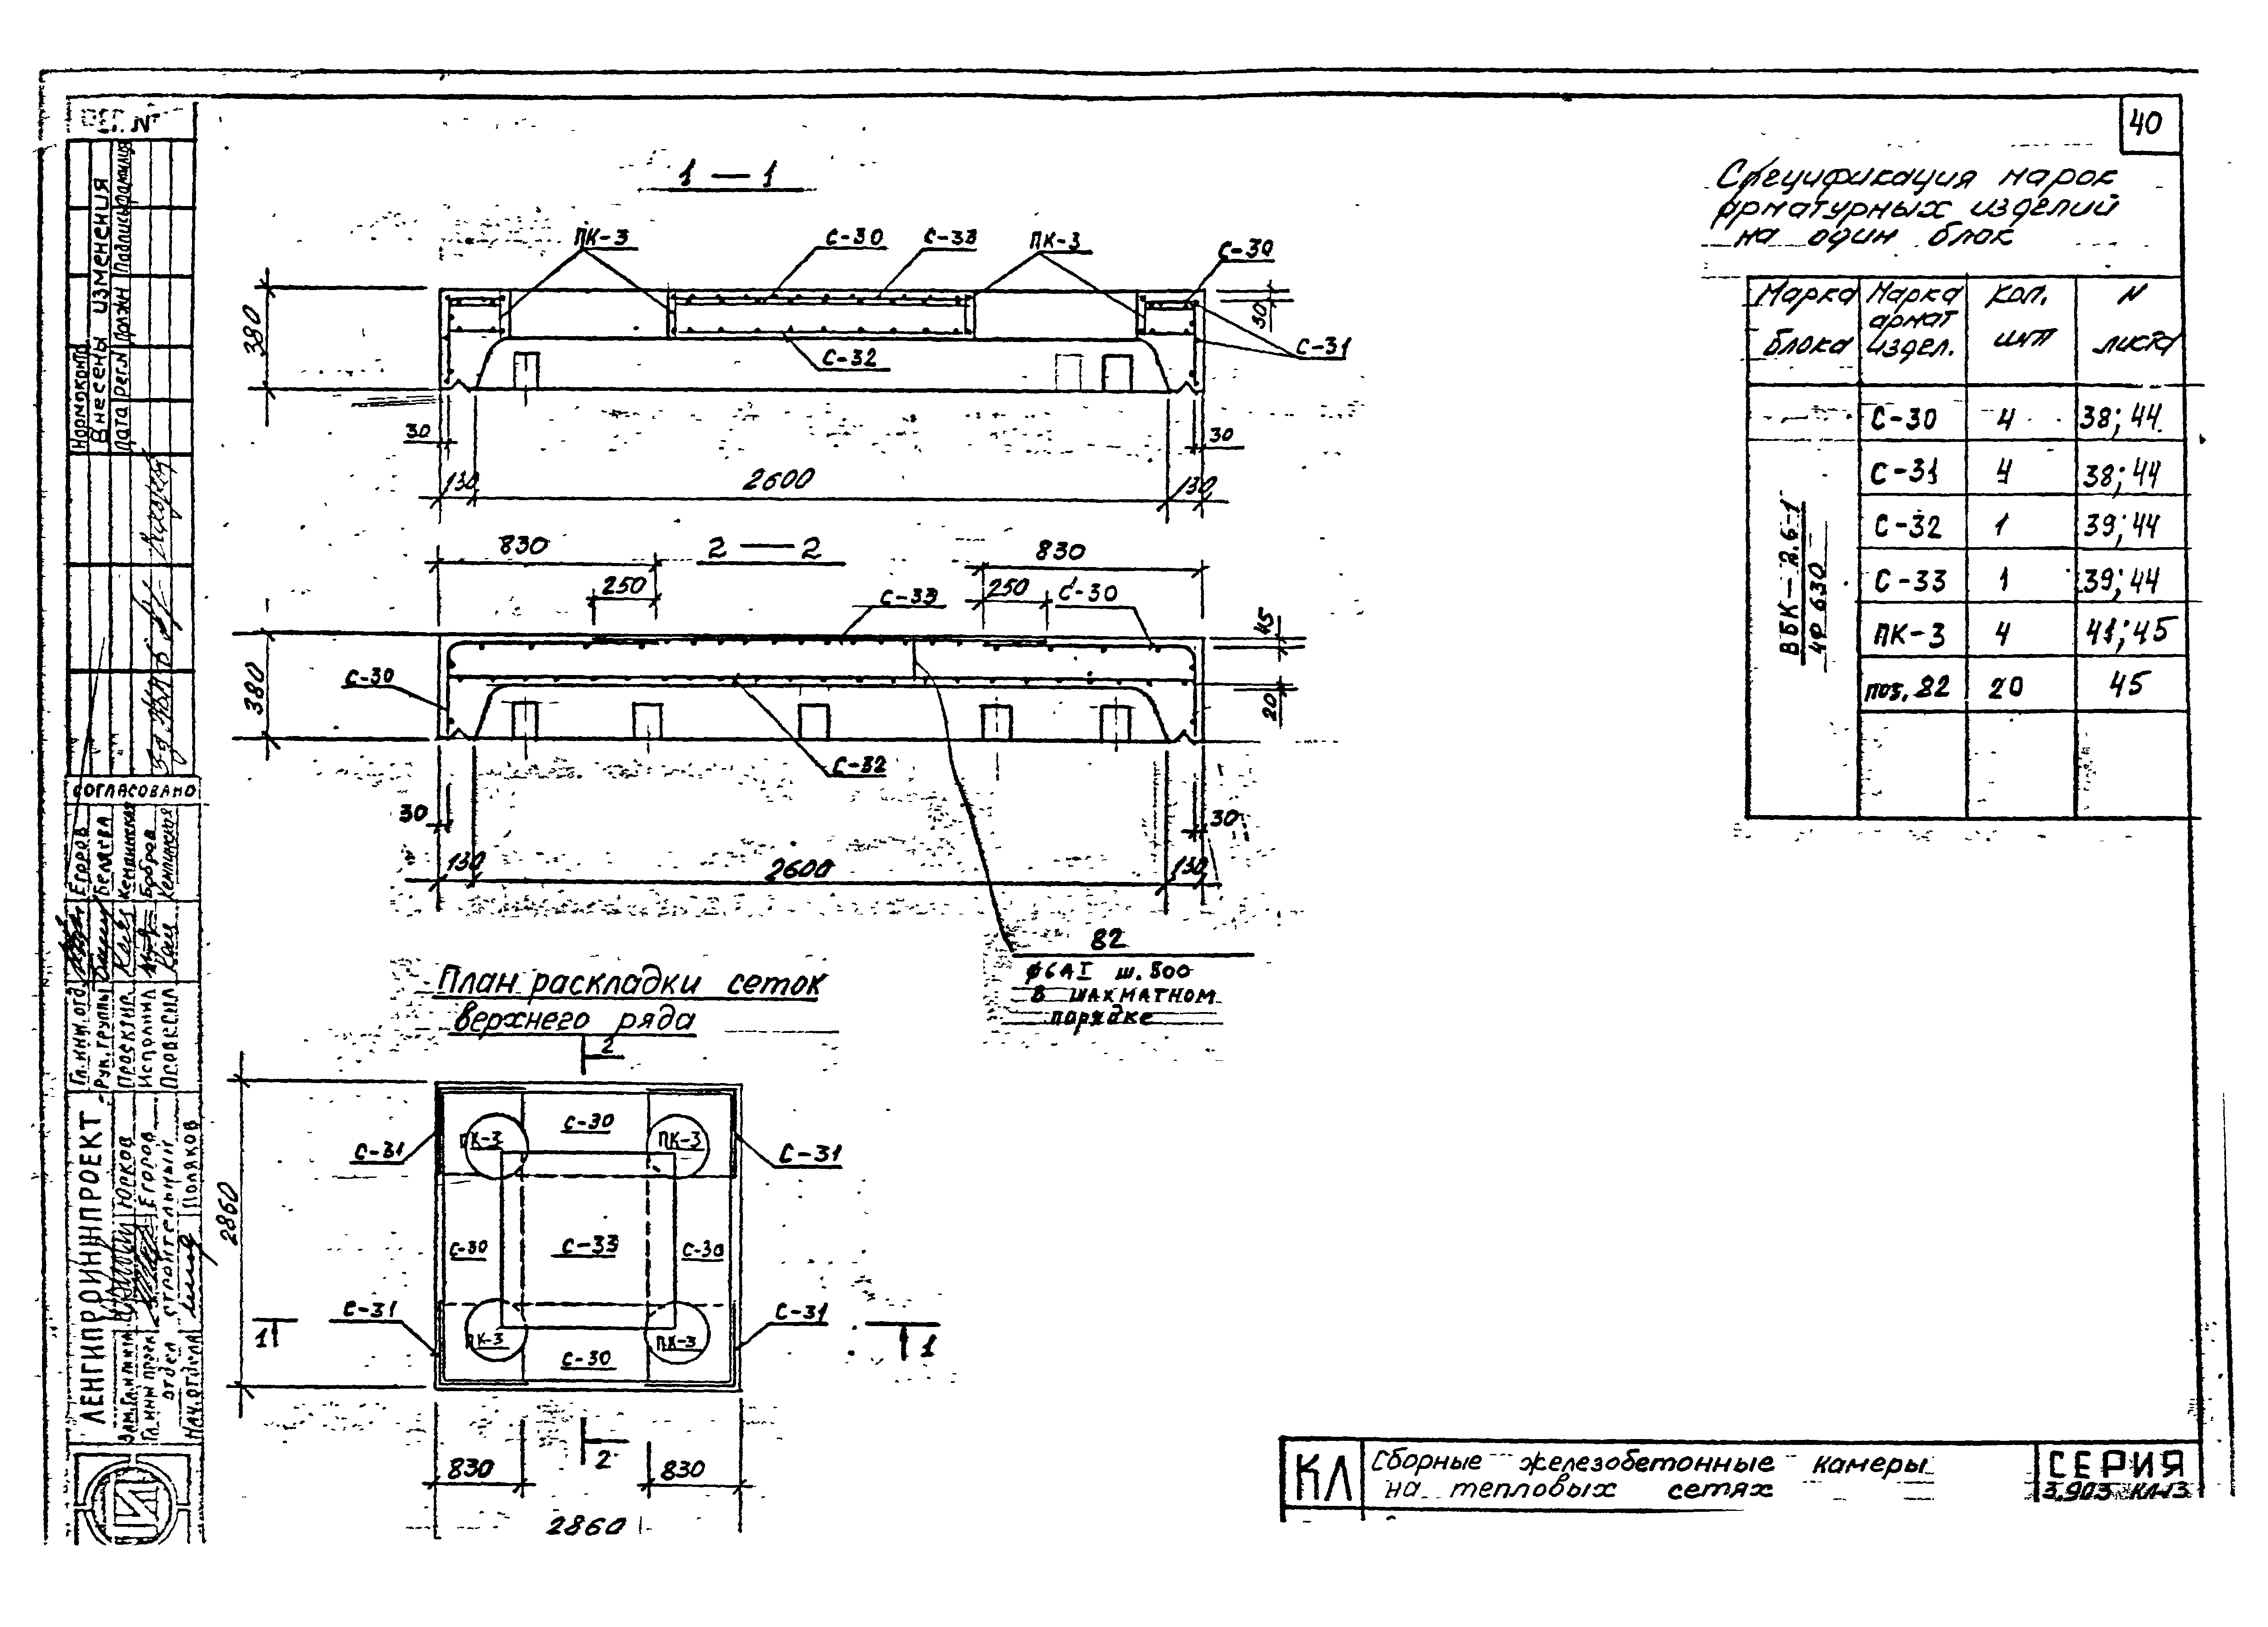 40
1 — 1
ПК-3
С-30
С-33
ПК-3
С-30
380
30
С-31
С-32
30
30
130
2600
130
830
2 — 2
830
250
250
С-33
С-30
45
380
С-30
20
С-32
30
30
130
2600
130
82
ø6АI ш. 500
в шахматном
порядке
План раскладки сеток
верхнего ряда
2
С-30
ПК-3
ПК-3
С-31
С-31
2860
С-30
С-33
С-30
С-31
С-31
1
1
ПК-3
ПК-3
С-30
2
830
830
2860
Спецификация марок
арматурных изделий
на один блок
Марка
блока
Марка
армат
издел.
Кол.
шт
N
листа
ВБК—2.6-1
4Ф 630
С-30 4 38; 44
С-31 4 38; 44
С-32 1 39; 44
С-33 1 39; 44
ПК-3 4 41; 45
поз. 82 20 45
КЛ
Сборные железобетонные камеры
на тепловых сетях
СЕРИЯ
3.903 КЛ-13
Нормоконтр
Внесены изменения
Дата рег.N Должн Подпись Фамилия
СОГЛАСОВАНО
Гл.инж.отд. Егоров
Рук.группы Беляева
Проектир. Кемпинская
Исполнил Бобров
Проверил Кемпинская
ЛЕНГИПРОИНЖПРОЕКТ
Зам.Гл.инж.ин Юрков
Гл.инж.проек. Егоров
отдел строительный
Нач.отдела Поляков